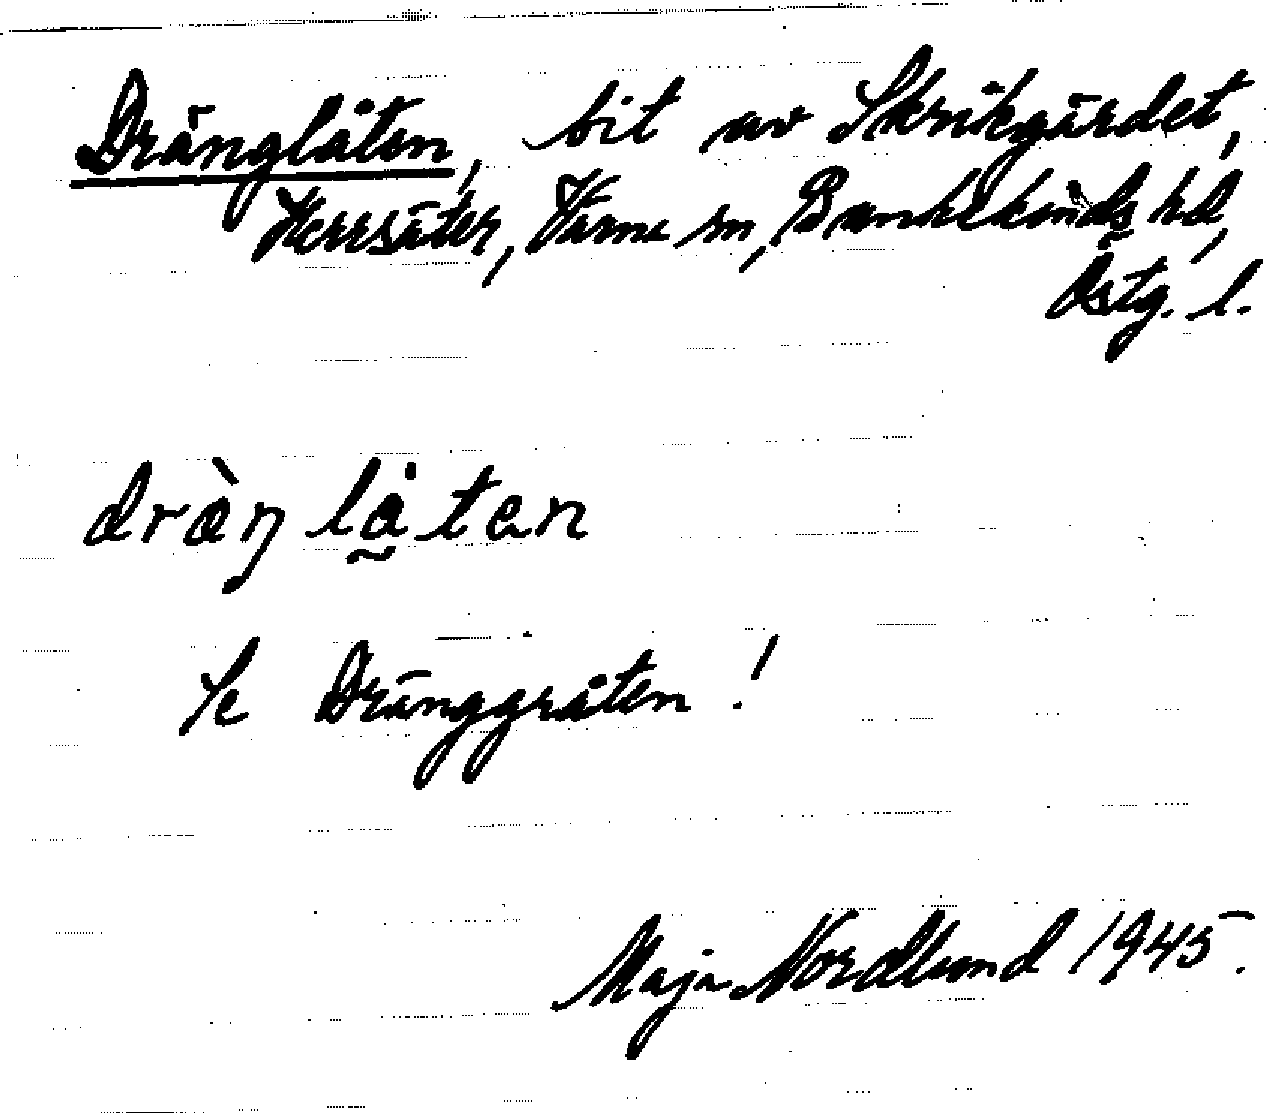 Dränglåten, bit av Skrikgärdet,
Herrsäter, Värna sn, Bankekinds hd,
Östg. l.
dräŋlåtan
Se Dränggråten!
Maja Nordlund 1945.